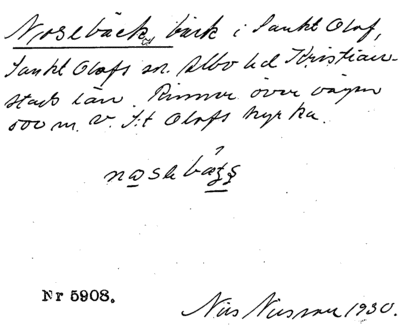 Nosebäck, bäck i Sankt Olof,
Sankt Olofs sn. Albo hd Kristian-
stads län. Rinner över vägen
500 m. V. S:t Olofs kyrka.
Nr 5908.
Nils Nilsson 1930.